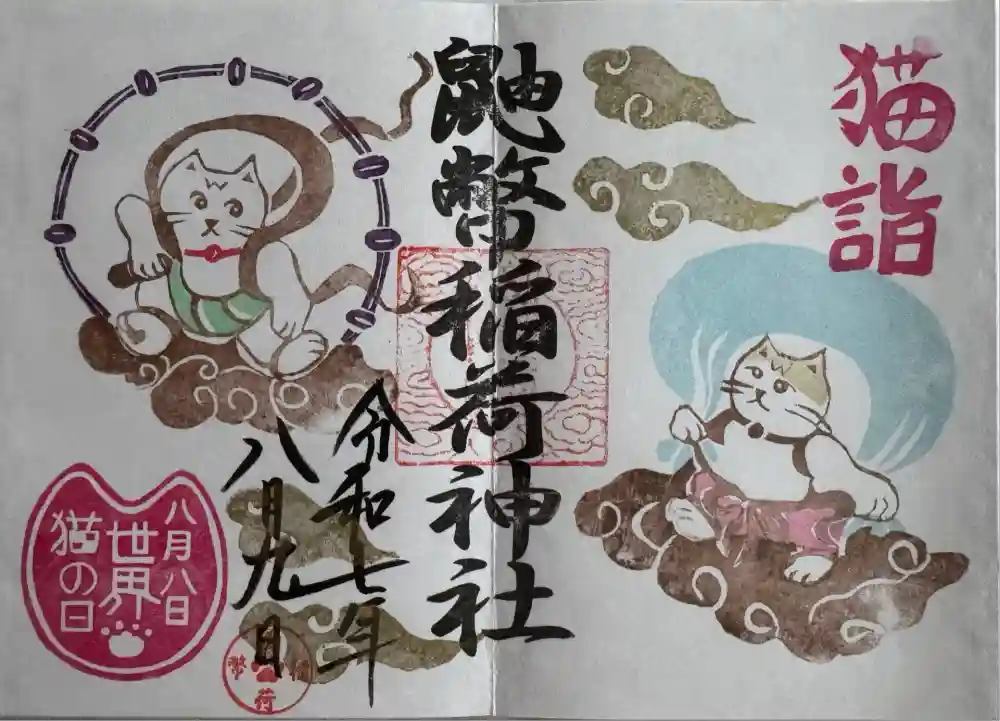 猫詣
鼬幣稲荷神社
令和七年
八月九日
八月八日
世界
猫の日